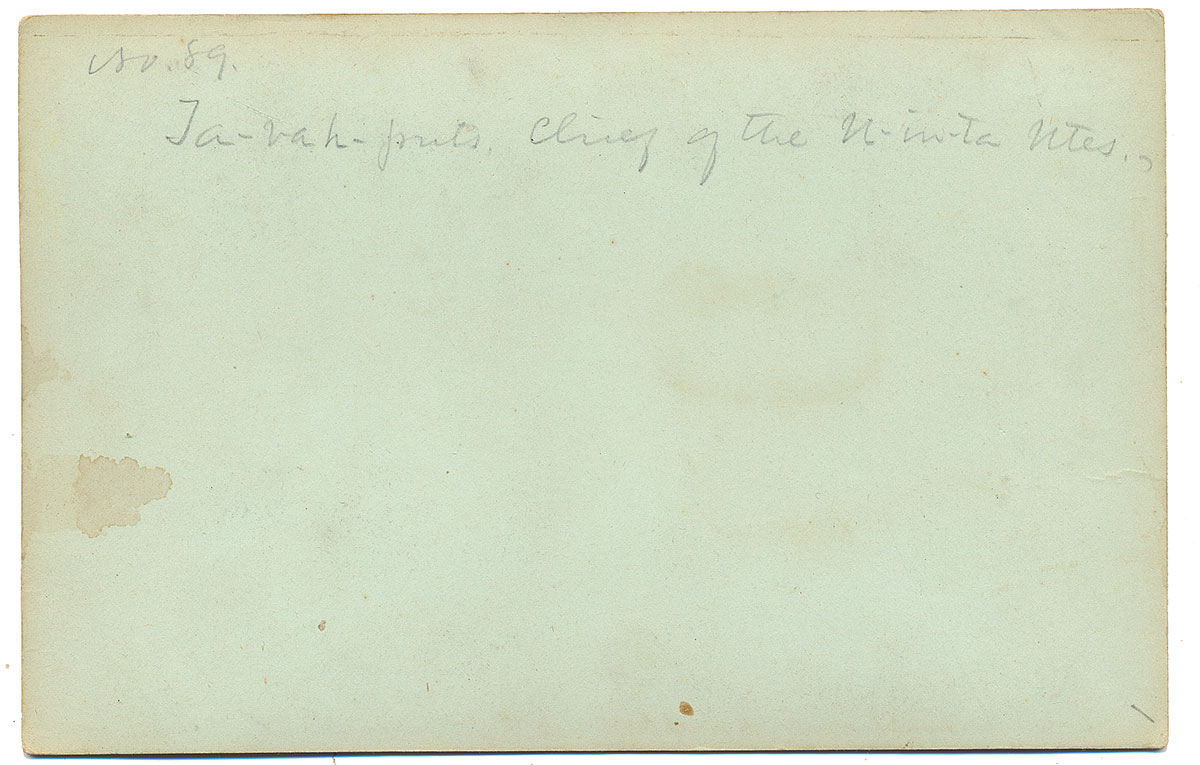 No. 89.
Ta-vah-puts. Chief of the U-in-ta Utes.